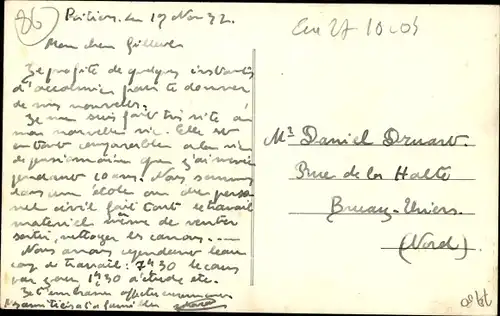 86
Poitiers, le 17 Nov 32.
Mon cher
Je profite de quelques instants
d'accalmie pour te donner
de mes nouvelles.
Je me suis fait très vite à
ma nouvelle vie. Elle est
en tout comparable à la vie
de pensionnaire que j'ai menée
pendant 10 ans. Nous sommes
dans une école où du person
nel civil fait tout le travail
matériel même de
nettoyer les carreaux....
Nous avons cependant beau
coup de travail : 7h30 de cours
par jour 1h30 d'étude etc.
Je t'embrasse affectueusement
Mes amitiés à ta famille
Mr Daniel Druart.
Rue de la Halte
Bruay-Thiers.
(Nord)